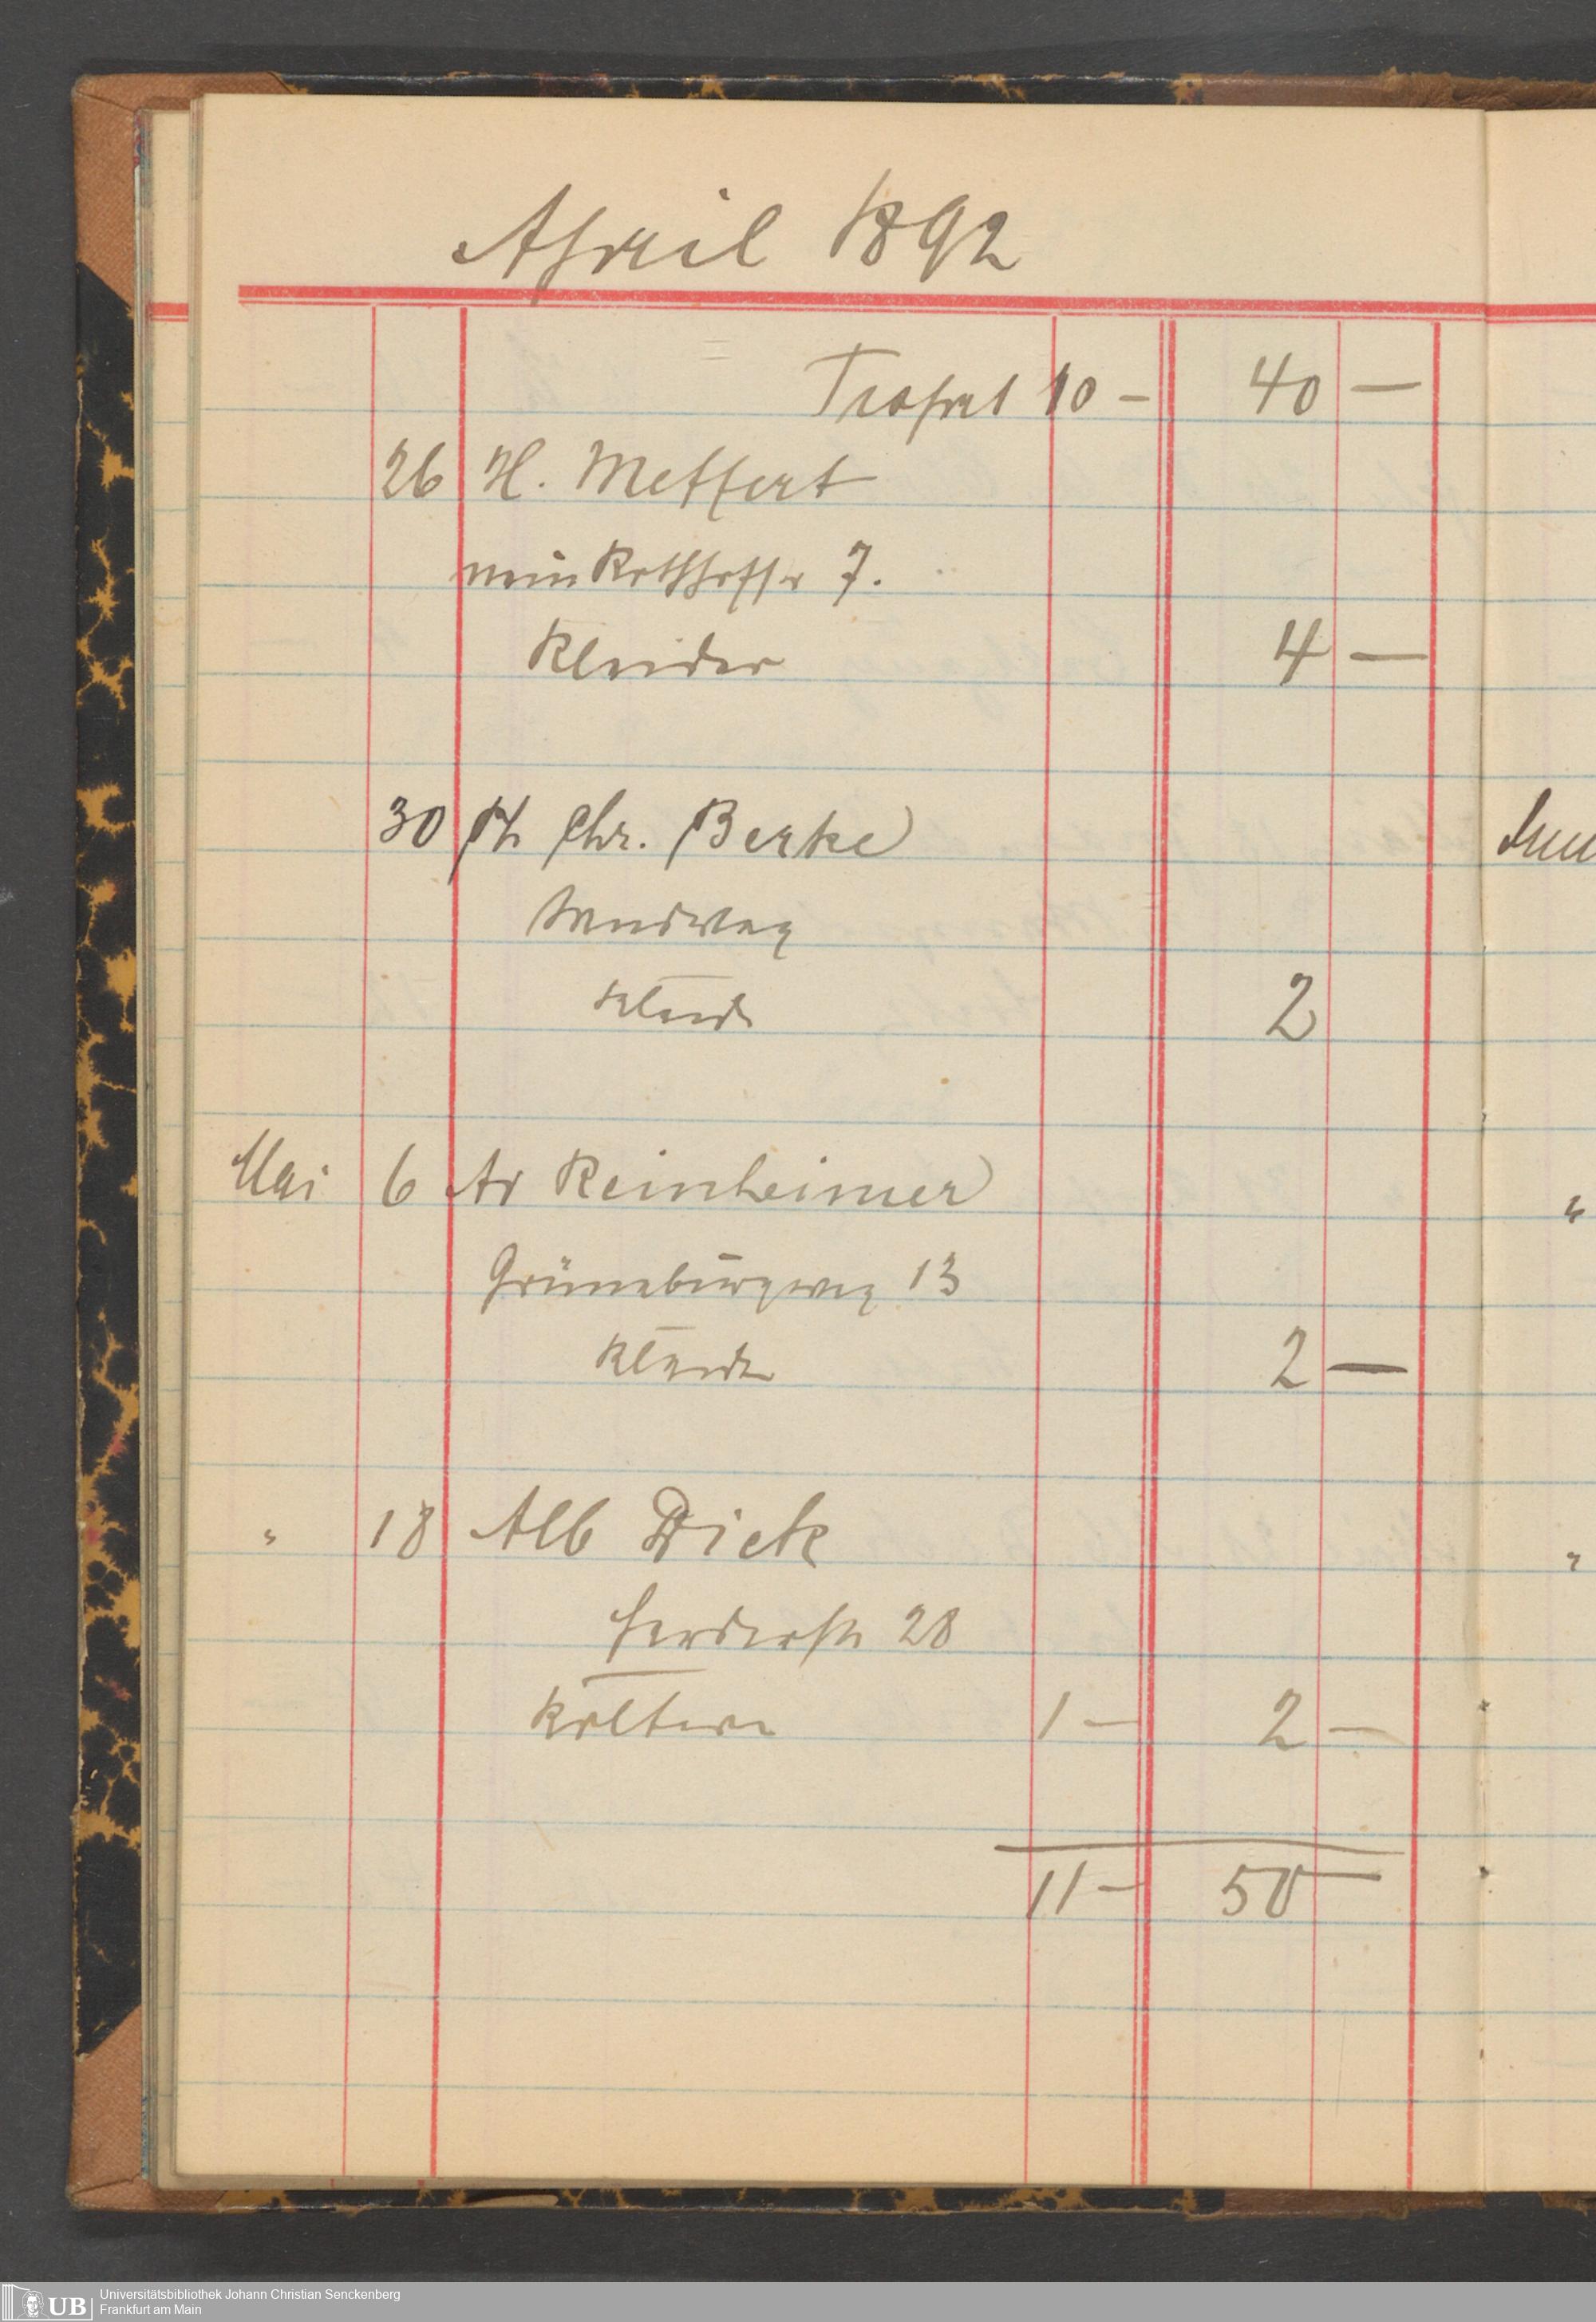 April 1892
Trsprt 10 - 40 -
26 H. Meffert
neü Rothhofstr 7.
Kleider 4 -
30 Ph Chr. Berke
Sandweg
Kleider 2
Mai 6 Av Reinheimer
Grüneburgweg 13
Kleider 2 -
" 18 Alb Dick
Herderstr 28
Koltern 1 - 2 -
11 - 50 -
Universitätsbibliothek Johann Christian Senckenberg
Frankfurt am Main
UB